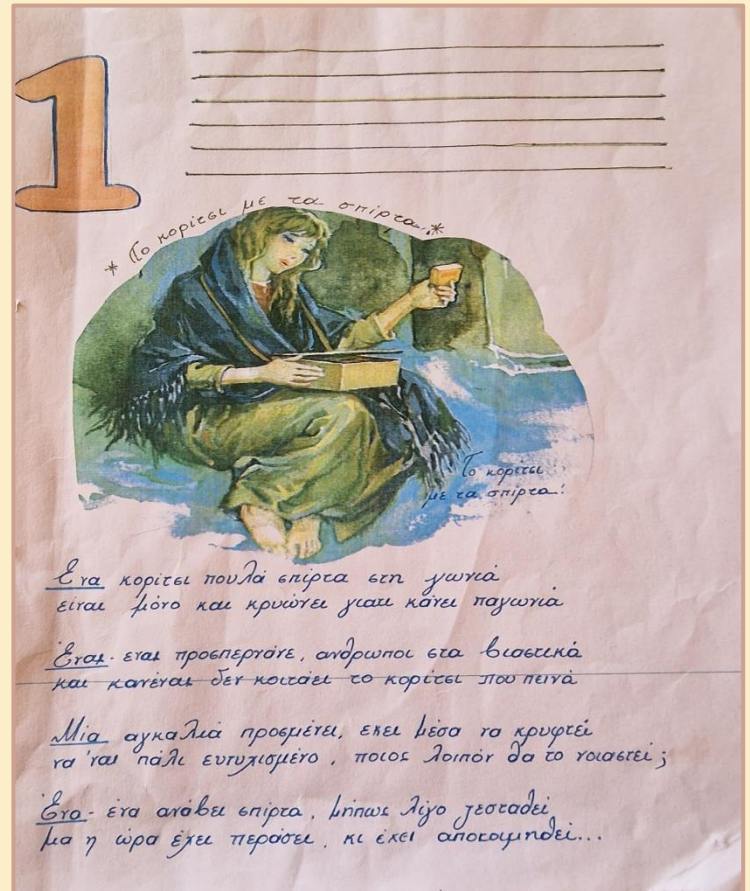 1
* Το κορίτσι με τα σπίρτα. *
Το κορίτσι
με τα σπίρτα!
Ένα κορίτσι πουλά σπίρτα στη γωνιά
είναι μόνο και κρυώνει γιατι κάνει παγωνιά
Ένας - ενας προσπερνάνε, ανθρωποι στα βιαστικά
και κανένας δεν κοιτάει το κορίτσι που πεινά
Μία αγκαλιά προσμένει, εκει μέσα να κρυφτεί
να 'ναι πάλι ευτυχισμένο, ποιος λοιπόν θα το νοιαστεί;
Ένα - ένα ανάβει σπίρτα, μήπως λίγο ζεσταθεί
μα η ώρα έχει περάσει, κι έχει αποκοιμηθεί...